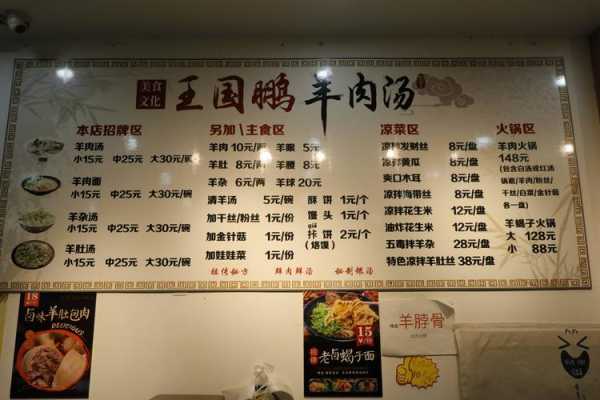 美食文化 王国鹏羊肉汤
本店招牌区
羊肉汤
小15元 中25元 大30元/碗
羊肉面
小15元 中25元 大30元/碗
羊杂汤
小15元 中25元 大30元/碗
羊肚汤
小15元 中25元 大30元/碗
另加\主食区
羊肉 10元/两 羊眼 5元
羊肚 8元/两 羊腰 8元
羊杂 6元/两 羊球 20元
清羊汤 5元/碗 酥饼 1元/个
加干丝/粉丝 1元/份 馒头 1元/个
加金针菇 1元/份 饼 2元/个
(烙馍)
加娃娃菜 1元/份
凉菜区
凉拌发财丝 8元/盘
凉拌黄瓜 8元/盘
爽口木耳 8元/盘
凉拌海带丝 8元/盘
凉拌花生米 12元/盘
油炸花生米 12元/盘
五毒拌羊杂 28元/盘
特色凉拌羊肚丝 38元/盘
火锅区
羊肉火锅
148元
(包含白汤或红汤
锅底/羊肉/粉丝/
干丝/白菜/金针菇
各一盘)
羊蝎子火锅
大 128元
小 88元
祖传秘方 鲜肉鲜汤 秘制靓汤
18
卤味羊肚包肉
DELICIOUS
15
老卤蝎子面
羊脖骨